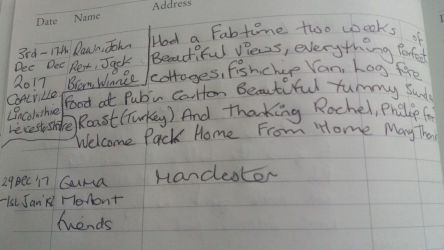 Date Name Address
3rd-17th Dawn, John Had a Fab time two weeks of
Dec Dec Rex, Jack Beautiful views, everything Perfect
2017 Winnie Cottages, fish chip Van, Log fire
Coalville Food at Pub in Carlton Beautiful Yummy
Lincolnshire Roast (Turkey) And Thanking Rachel, Philip For
Leicestshire Welcome Pack Home From Home Many
29 Dec '17 Manchester
-1st Jan '18
friends